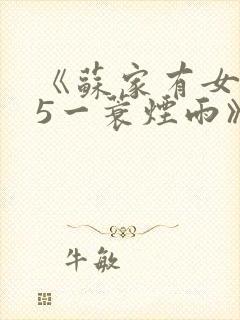 《蘇家有女
5一蓑煙雨》
牛敏